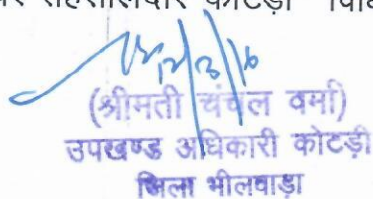 तहसीलदार कोटड़ी
(श्रीमती चंचल वर्मा)
उपखण्ड अधिकारी कोटड़ी
जिला भीलवाड़ा